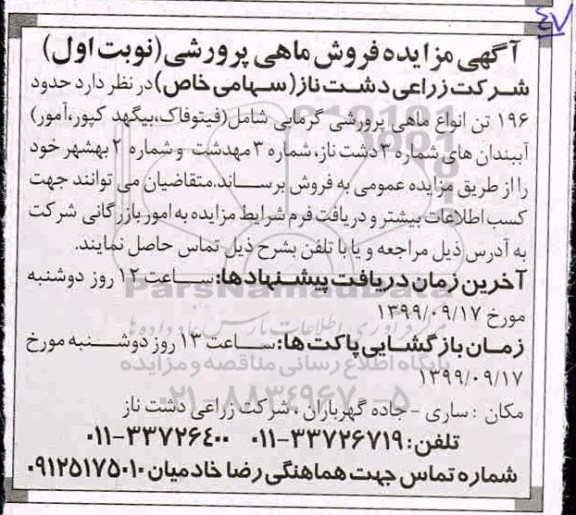 ۴۷
آگهی مزایده فروش ماهی پرورشی (نوبت اول)
شرکت زراعی دشت ناز (سهامی خاص) در نظر دارد حدود
۱۹۶ تن انواع ماهی پرورشی گرمابی شامل (فیتوفاک، بیگهد کپور، آمور)
آببندان های شماره ۳ دشت ناز، شماره ۳ مهدشت و شماره ۲ بهشهر خود
را از طریق مزایده عمومی به فروش برساند. متقاضیان می توانند جهت
کسب اطلاعات بیشتر و دریافت فرم شرایط مزایده به امور بازرگانی شرکت
به آدرس ذیل مراجعه و یا با تلفن بشرح ذیل تماس حاصل نمایند.
آخرین زمان دریافت پیشنهادها: ساعت ۱۲ روز دوشنبه
ParsNamadData
مورخ ۱۳۹۹/۰۹/۱۷
زمان بازگشایی پاکت ها: ساعت ۱۳ روز دوشنبه مورخ
پایگاه اطلاع رسانی مناقصه و مزایده
۱۳۹۹/۰۹/۱۷
۰۲۱-۸۸۳۴۹۶۷۰-۵
مکان : ساری - جاده گهرباران ، شرکت زراعی دشت ناز
تلفن: ۳۳۷۲۶۷۱۹-۰۱۱ ۳۳۷۲۶۴۰۰-۰۱۱
شماره تماس جهت هماهنگی رضا خادمیان ۰۹۱۲۵۱۷۵۰۱۰